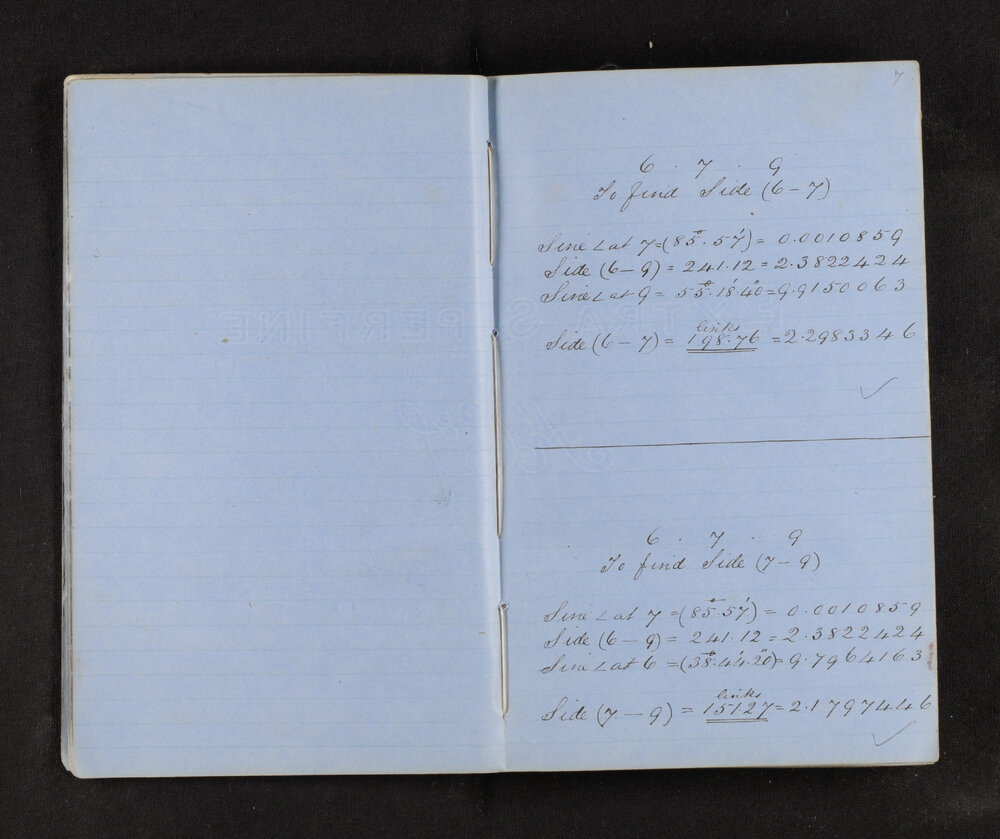 7
6 . 7 . 9
To find Side (6 – 7)
Sine ∠ at 7 = (85°. 57') = 0.0010859
Side (6 – 9) = 241.12 = 2.3822424
Sine ∠ at 9 = 55°.18'.40" = 9.9150063
links
Side (6 – 7) = 198.76 = 2.2983346
✓
6 . 7 . 9
To find Side (7 – 9)
Sine ∠ at 7 = (85°.57') = 0.0010859
Side (6 – 9) = 241.12 = 2.3822424
Sine ∠ at 6 = (38°.44'.20") = 9.7964163
links
Side (7 – 9) = 151.27 = 2.1797446
✓